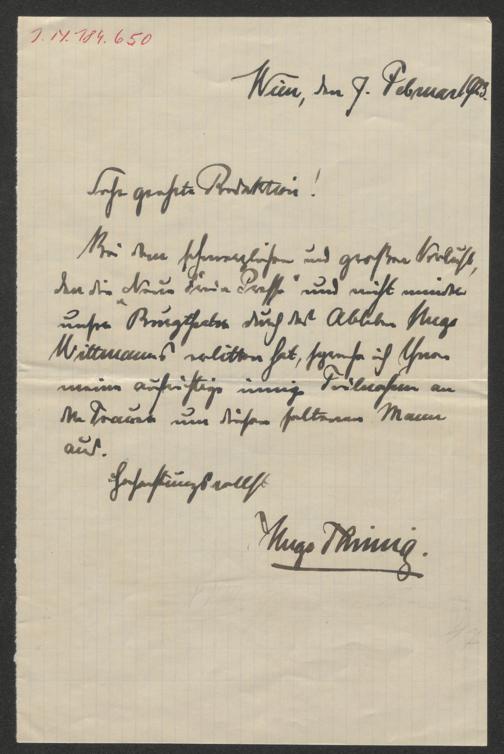 J.N. 184.650
Wien, den 7. Februar 1923.
Sehr geehrte Redaktion!
Bei dem schmerzlichen und großen Verluste,
den die „Neue Freie Presse" und nicht minder
unser Burgtheater durch das Ableben Hugo
Wittmanns erlitten hat, spreche ich Ihnen
meine aufrichtige innige Teilnahme an
der Trauer um diesen seltenen Mann
aus.
Hochachtungsvollst
Hugo Thimig.